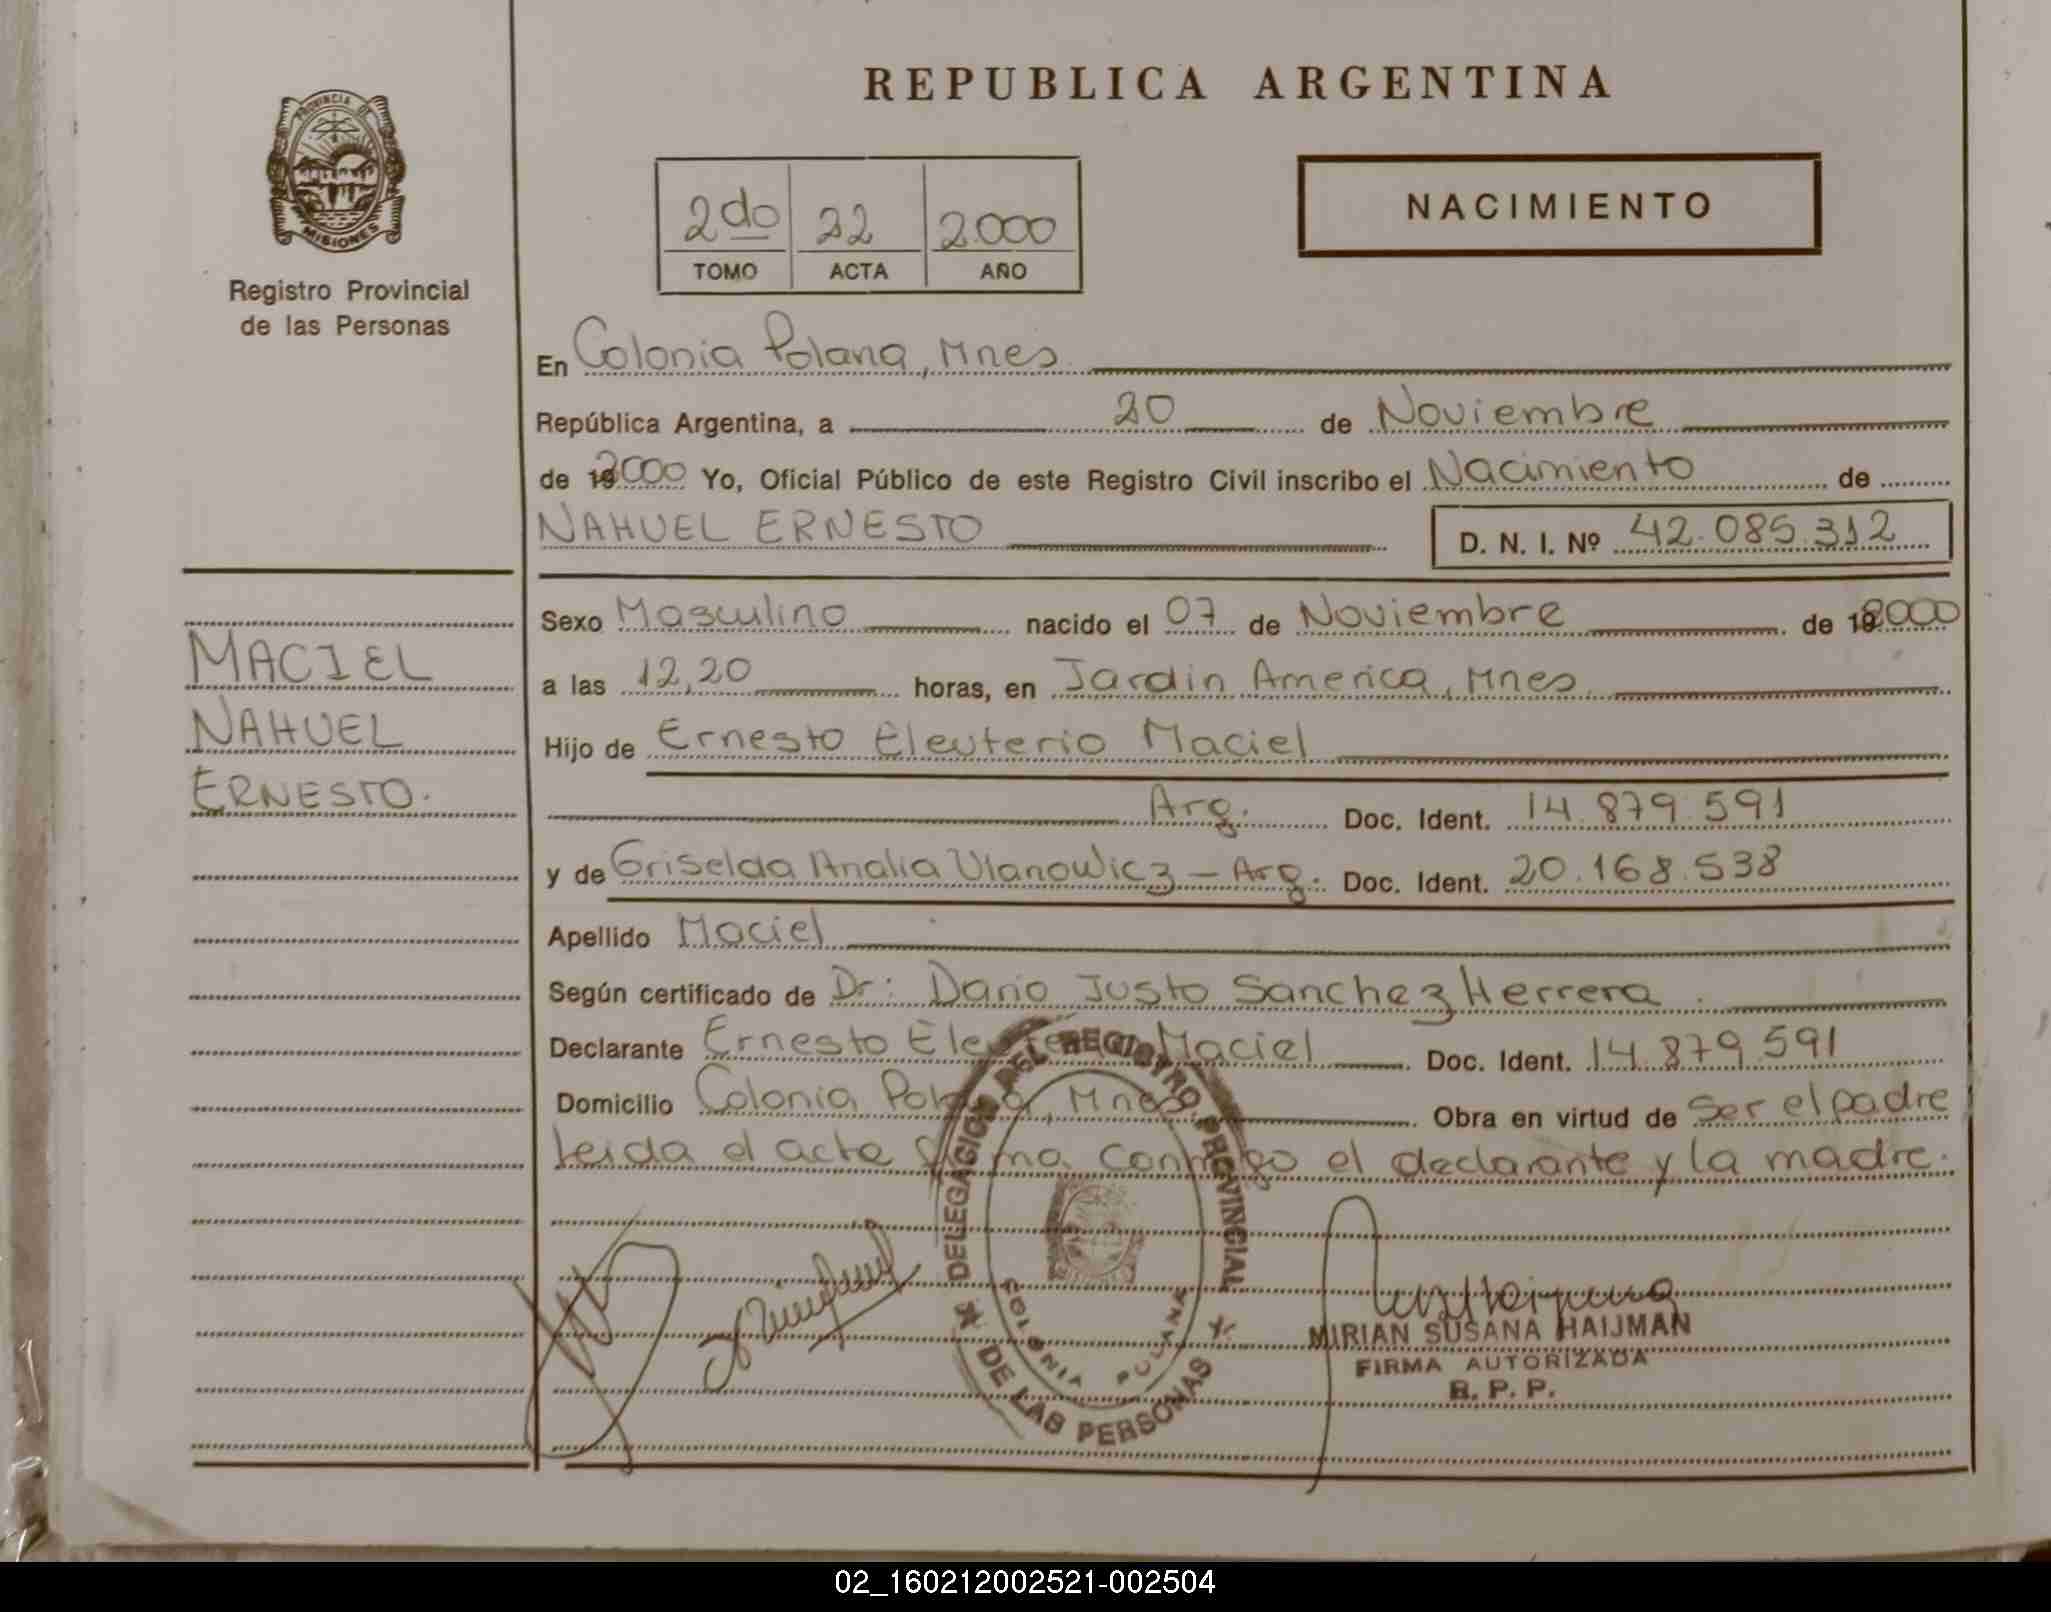 REPUBLICA ARGENTINA
PROVINCIA DE
MISIONES
Registro Provincial
de las Personas
2do 22 2.000
TOMO ACTA AÑO
NACIMIENTO
En Colonia Polana, Mnes.
República Argentina, a 20 de Noviembre
de 192000 Yo, Oficial Público de este Registro Civil inscribo el Nacimiento de
NAHUEL ERNESTO D. N. I. Nº 42.085.312
MACIEL
NAHUEL
ERNESTO.
Sexo Masculino nacido el 07 de Noviembre de 192000
a las 12,20 horas, en Jardin America, Mnes.
Hijo de Ernesto Eleuterio Maciel
Arg. Doc. Ident. 14.879.591
y de Griselda Analia Ulanowicz - Arg. Doc. Ident. 20.168.538
Apellido Maciel
Según certificado de Dr: Dario Justo Sanchez Herrera.
Declarante Ernesto Eleuterio Maciel Doc. Ident. 14.879.591
Domicilio Colonia Polana, Mnes. Obra en virtud de ser el padre
Leida el acta firma conmigo el declarante y la madre.
DELEGACION DEL REGISTRO PROVINCIAL
DE LAS PERSONAS
COLONIA POLANA
MIRIAN SUSANA HAIJMAN
FIRMA AUTORIZADA
R. P. P.
02_160212002521-002504